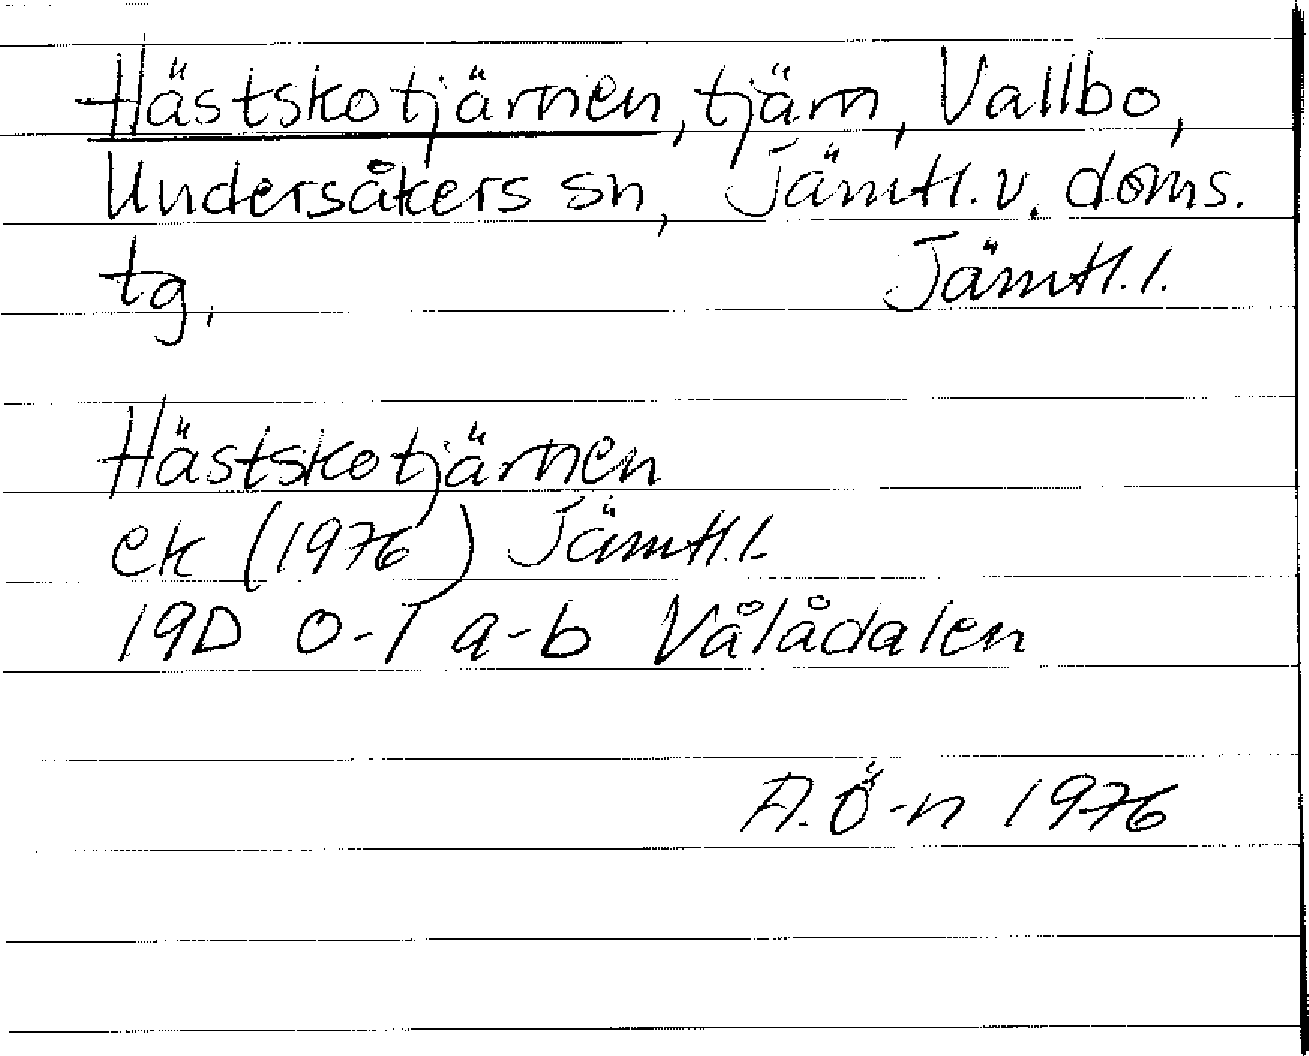 Hästskotjärnen, tjärn, Vallbo,
Undersåkers sn, Jämtl. v. doms.
tg, Jämtl.l.
Hästskotjärnen
ek (1976) Jämtl.l.
19D 0-1 a-b Vålådalen
A. Ö-n 1976